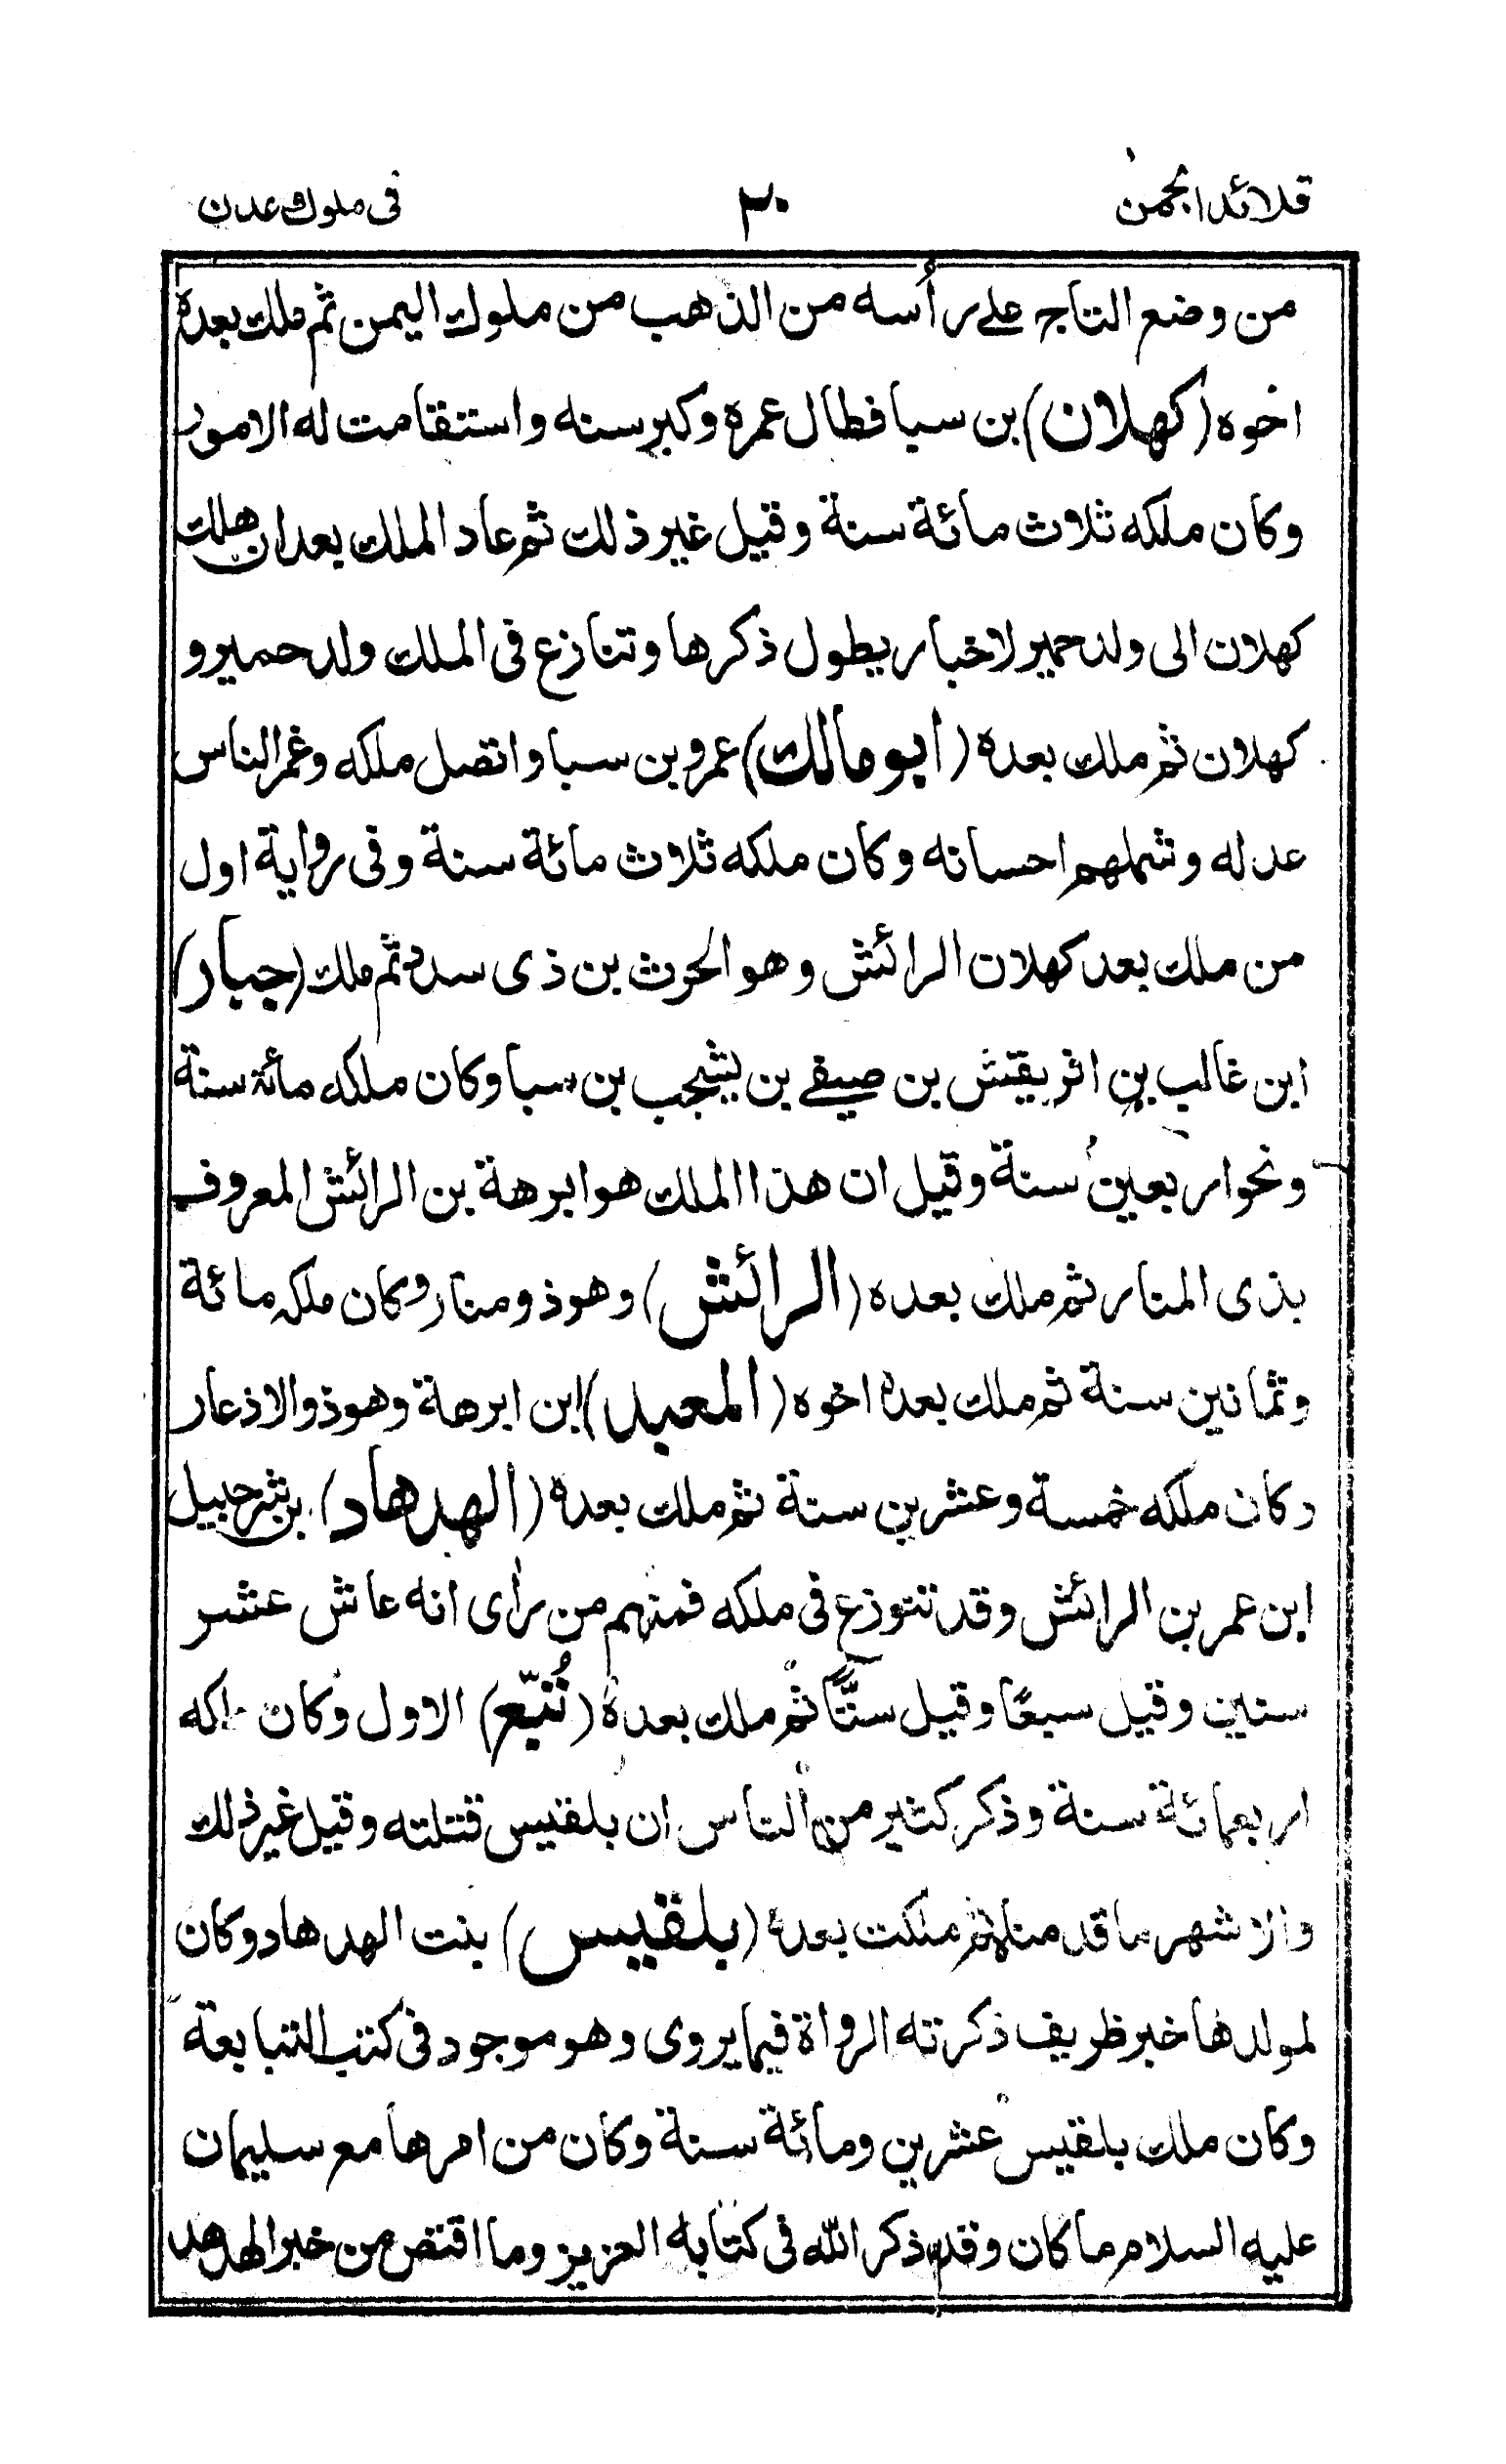 قلائد الجمن ٣٠ فى ملوك عدن
من وضع التاج على رأسه من الذهب من ملوك اليمن ثم ملك بعده
اخوه (كهلان) بن سبا فطال عمره وكبر سنه واستقامت له الامور
وكان ملكه ثلاث مائة سنة وقيل غير ذلك ثم عاد الملك بعد ان هلك
كهلان الى ولد حمير لاخبار يطول ذكرها وتنازع فى الملك ولد حمير و
كهلان ثم ملك بعده (ابو مالك) عمرو بن سبا واتصل ملكه وغمر الناس
عدله وشملهم احسانه وكان ملكه ثلاث مائة سنة وفى رواية اول
من ملك بعد كهلان الرائش وهو الحرث بن ذى سدد ثم ملك (جبار)
ابن غالب بن افريقش بن صيفى بن يشجب بن سبا وكان ملكه مائة سنة
ونحو اربعين سنة وقيل ان هذا الملك هو ابرهة بن الرائش المعروف
بذى المنار ثم ملك بعده (الرائش) وهو ذو منار وكان ملكه مائة
وثمانين سنة ثم ملك بعده اخوه (المعبد) ابن ابرهة وهو ذوالاذعار
وكان ملكه خمسة وعشرين سنة ثم ملك بعده (الهدهاد) بن شرحبيل
ابن عمر بن الرائش وقد تنوزع فى ملكه فمنهم من رأى انه عاش عشر
سنين وقيل سبعًا وقيل ستًّا ثم ملك بعده (تُبّع) الاول وكان ملكه
اربعمائة سنة وذكر كثير من الناس ان بلقيس قتلته وقيل غير ذلك
والاشهر ما قدمناه ثم ملكت بعده (بلقيس) بنت الهدهاد وكان
لمولدها خبر ظريف ذكرته الرواة فيما يروى وهو موجود فى كتب التبابعة
وكان ملك بلقيس عشرين ومائة سنة وكان من امرها مع سليمان
عليه السلام ما كان وقد ذكر الله فى كتابه العزيز وما اقتص من خبر الهدهد